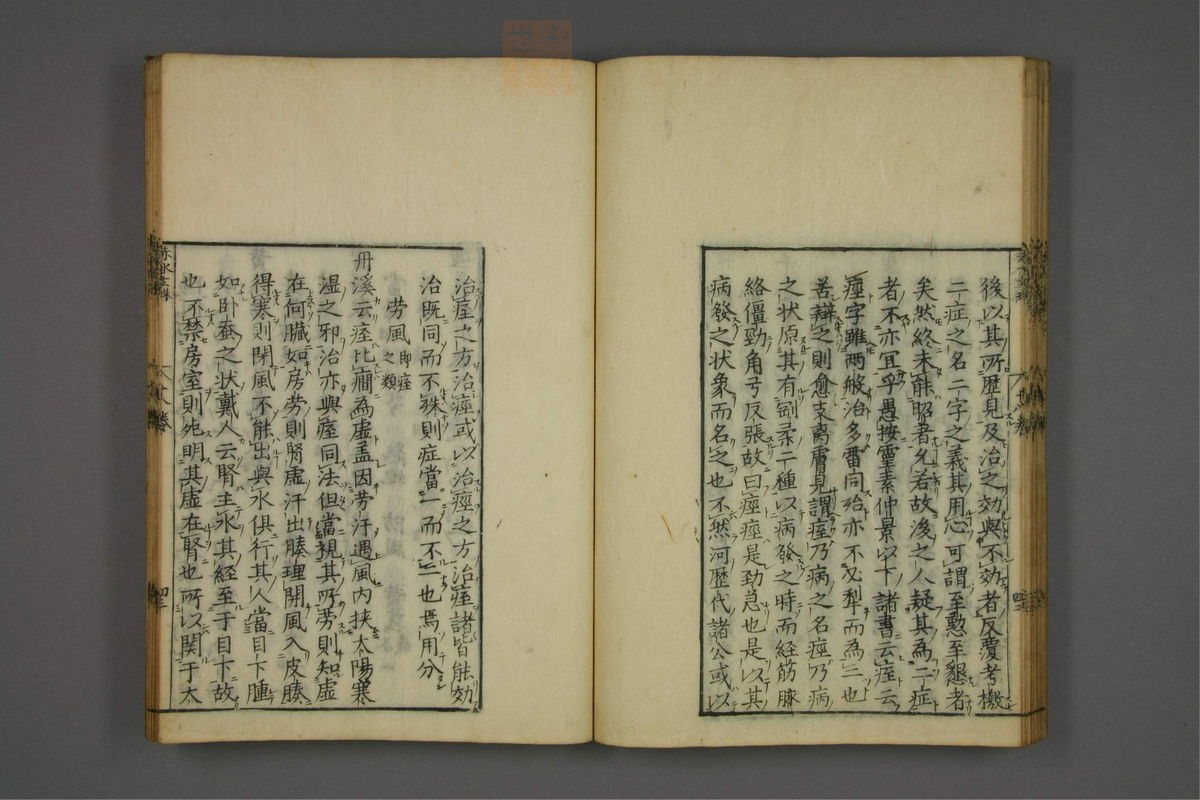 後以其所歴見及治之効與不効者反覆考檄
二症之名二字之義其用心可謂至懃至懇者
矣然終未能昭著允若故後之人疑其為二症
者不亦宜乎愚按靈素仲景以下諸書云痓云
痙字雖兩般治多畨同殆亦不又犁而為二也
苦辯之則愈支离膚見謂痓乃病之名痙乃病
之状原其有剛柔二種以病發之時而経筋脉
絡僵勁角弓反張故曰痙痙是勁急也是以其
病發之状象而名之也不然河歴代諸公或以
治痓之方治痙或以治痙之方治痓諸皆能効
治既同而不殊則症當一而不二也焉用分
労風即痓之類
丹溪云痓比癎為虚盖因労汗遇風内挟太陽寒
湿之邪治亦與痙同法但當視其所労則知虚
在何臓如房労則腎虚汗出腠理開風入皮腠
得寒則閉風不能出與水俱行其人當目下腫
如卧蚕之状戴人云腎主水其経至于目下故
也不禁房室則死明其虚在腎也所以関于太